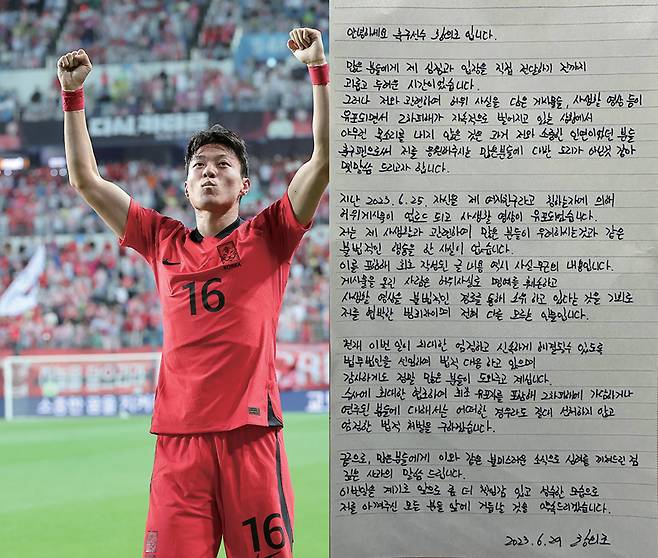 KOREA
16
16
안녕하세요 축구선수 황의조 입니다.
많은 분들에게 제 심정과 입장을 직접 전달하기 전까지
괴롭고 두려운 시간이었습니다.
그러나 저와 관련하여 허위 사실을 담은 게시물들, 사생활 영상 등이
유포되면서 2차피해가 지속적으로 벌어지고 있는 상황에서
아무런 목소리를 내지 않는 것은 과거 저와 소중한 인연이었던 분들
축구팬으로써 저를 응원해주시는 많은분들에 대한 도리가 아닌것 같아
몇말씀 드리고자 합니다.
지난 2023. 6. 25. 자신을 제 여자친구라고 칭하는자에 의해
허위게시물이 업로드 되고 사생활 영상이 유포되었습니다.
저는 제 사생활과 관련하여 많은 분들이 우려하시는것과 같은
불법적인 행동을 한 사실이 없습니다.
이를 포함해 최초 작성된 글 내용 역시 사실무근의 내용입니다.
게시물을 올린 사람은 허위사실로 명예를 훼손하고
사생활 영상을 불법적인 경로를 통해 소유하고 있다는 것을 기회로
저를 협박한 범죄자이며 전혀 다 모르는 인물입니다.
현재 이번 일이 최대한 엄정하고 신속하게 해결될수 있도록
법무법인을 선임하여 법적 대응 하고 있으며
감사하게도 정말 많은 분들이 도와주고 계십니다.
수사에 최대한 협조하여 최초 유포자를 포함해 2차피해에 가담하거나
연루된 분들에 대해서는 어떠한 경우라도 절대 선처하지 않고
엄정한 법적 처벌을 구하겠습니다.
끝으로, 많은분들에게 이와 같은 불미스러운 소식으로 심려를 끼쳐드린 점
깊은 사과의 말씀 드립니다.
이번일을 계기로 앞으로 좀 더 책임감 있고 성숙한 모습으로
저를 아껴주신 모든 분들 앞에 거듭날 것을 약속드리겠습니다.
2023. 6. 29 황의조